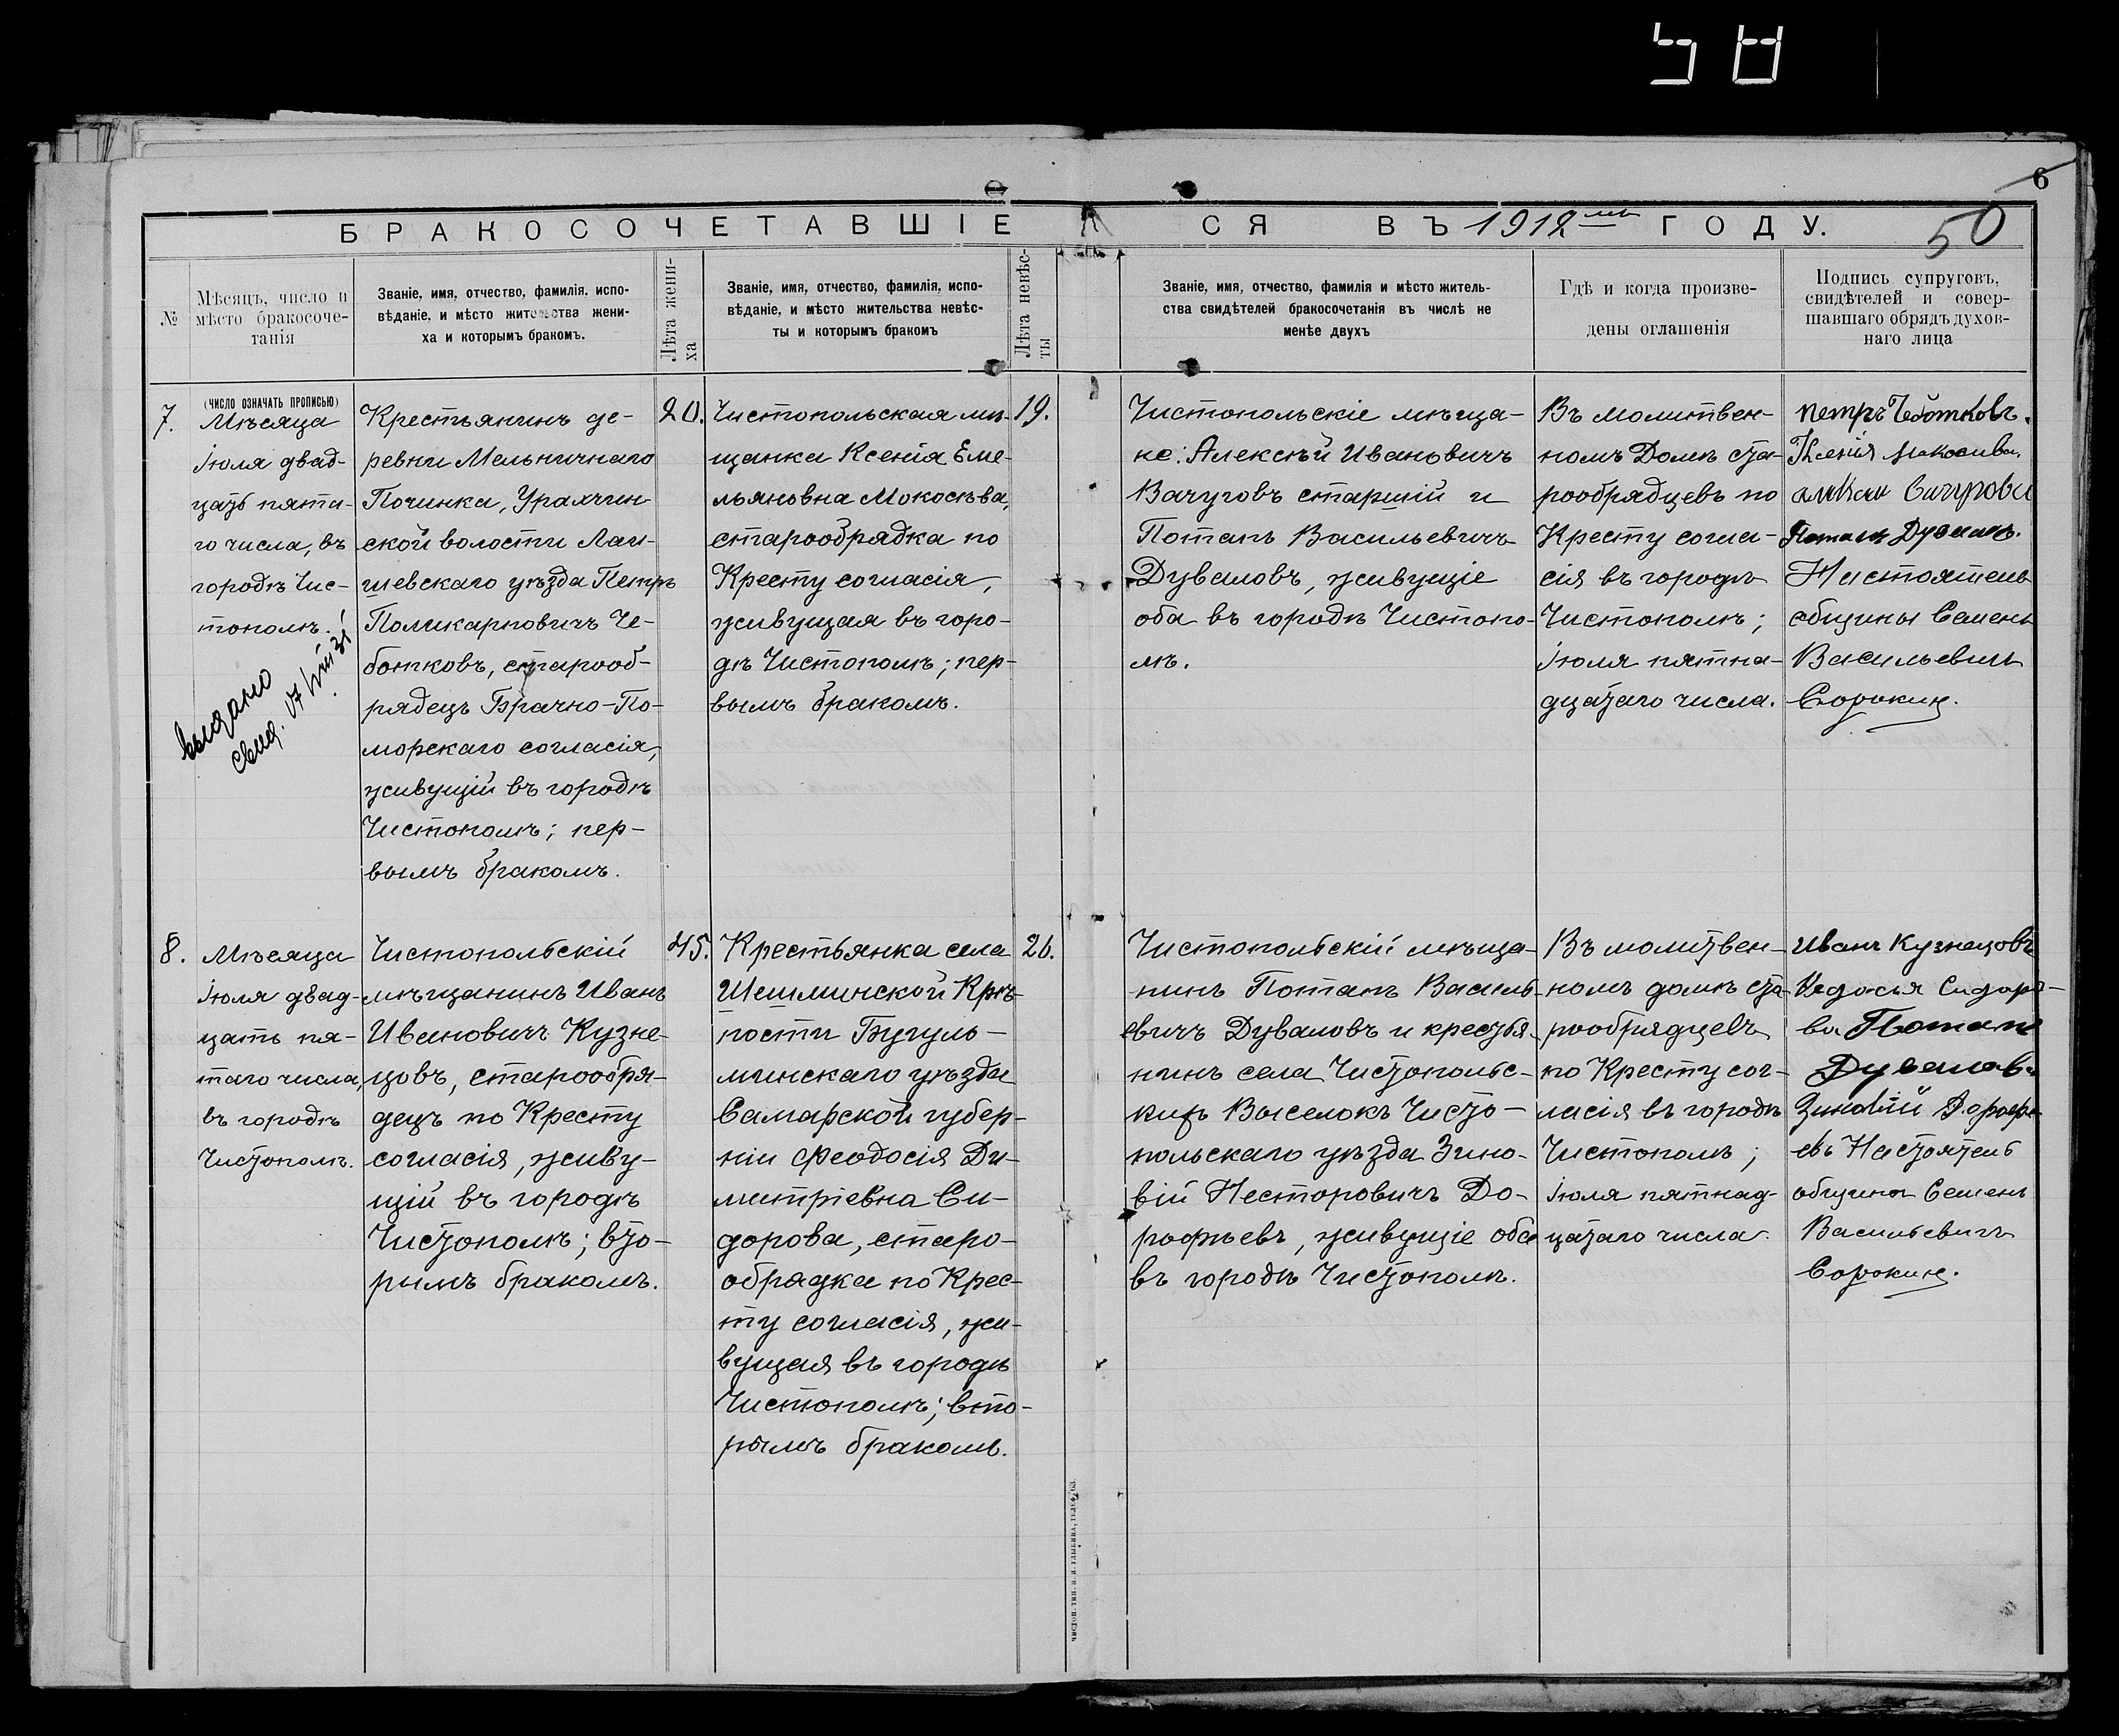 58
6
50
БРАКОСОЧЕТАВШІЕСЯ ВЪ 1912мъ ГОДУ.
№
Мѣсяцъ, число и
мѣсто бракосоче-
танія
Званіе, имя, отчество, фамилія, испо-
вѣданіе, и мѣсто жительства жени-
ха и которымъ бракомъ.
Лѣта жени-
ха
Званіе, имя, отчество, фамилія, испо-
вѣданіе, и мѣсто жительства невѣс-
ты и которымъ бракомъ
Лѣта невѣс-
ты
Званіе, имя, отчество, фамилія и мѣсто житель-
ства свидѣтелей бракосочетанія въ числѣ не
менѣе двухъ
Гдѣ и когда произве-
дены оглашенія
Подпись супруговъ,
свидѣтелей и совер-
шавшаго обрядъ духов-
наго лица
(ЧИСЛО ОЗНАЧАТЬ ПРОПИСЬЮ)
7.
Мѣсяца
Іюля двад-
цать пята-
го числа, въ
городѣ Чис-
тополѣ.
выдано
свид.
Крестьянинъ де-
ревни Мельничнаго
Починка, Урахчин
ской волости Лаи-
шевскаго уѣзда Петръ
Поликарповичъ Че-
ботковъ, старооб-
рядецъ Брачно-По-
морскаго согласія,
живущій въ городѣ
Чистополѣ; пер-
вымъ бракомъ.
20.
Чистопольская мѣ-
щанка Ксенія Еме-
льяновна Мокосѣва,
старообрядка по
Кресту согласія,
живущая въ горо-
дѣ Чистополѣ; пер-
вымъ бракомъ.
19.
Чистопольскіе мѣща-
не: Алексѣй Ивановичъ
Вачуговъ старшій и
Потапъ Васильевичъ
Дуваловъ, живущіе
оба въ городѣ Чистопо-
лѣ.
Въ молитвен-
номъ Домѣ ста-
рообрядцевъ по
Кресту согла-
сія въ городѣ
Чистополѣ;
Іюля пятна-
дцатаго числа.
Петръ Чеботковъ.
Ксенія
Потапъ
Настоятель
общины Семенъ
Васильевичъ
Сорокинъ.
8.
Мѣсяца
Іюля двад-
цать пя-
таго числа,
въ городѣ
Чистополѣ.
Чистопольскій
мѣщанинъ Иванъ
Ивановичъ Кузне-
цовъ, старообря-
децъ по Кресту
согласія, живу-
щій въ городѣ
Чистополѣ; вто-
рымъ бракомъ.
45.
Крестьянка села
Шешминской Крѣ-
пости Бугуль-
минскаго уѣзда
Самарской губер-
ніи Феодосія Ди-
митріевна Си-
дорова, старо-
обрядка по Крес-
ту согласія, жи-
вущая въ городѣ
Чистополѣ; вто-
рымъ бракомъ.
26.
Чистопольскій мѣща-
нинъ Потапъ Василь-
евичъ Дуваловъ и крестья-
нинъ села Чистопольс-
кихъ Выселокъ Чисто-
польскаго уѣзда Зино-
вій Несторовичъ До-
рофѣевъ, живущіе оба
въ городѣ Чистополѣ.
Въ молитвен-
номъ домѣ ста-
рообрядцевъ
по Кресту сог-
ласія въ городѣ
Чистополѣ;
Іюля пятнад-
цатаго числа.
Иванъ Кузнецовъ
Сидоро-
ва Потапъ
Дуваловъ
Зиновій Дорофе
евъ Настоятель
общины Семенъ
Васильевичъ
Сорокинъ.